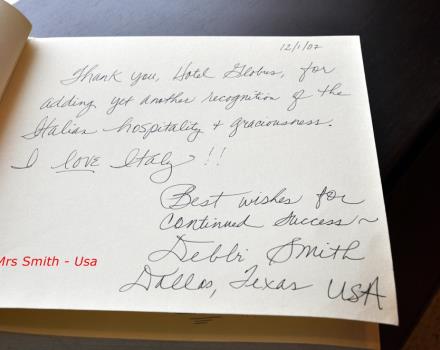 12/1/07
Thank you, Hotel Globus, for
adding yet another recognition of the
Italian hospitality + graciousness.
I love Italy!!
Best wishes for
continued success ~
Debbi Smith
Mrs Smith - Usa
Dallas, Texas USA